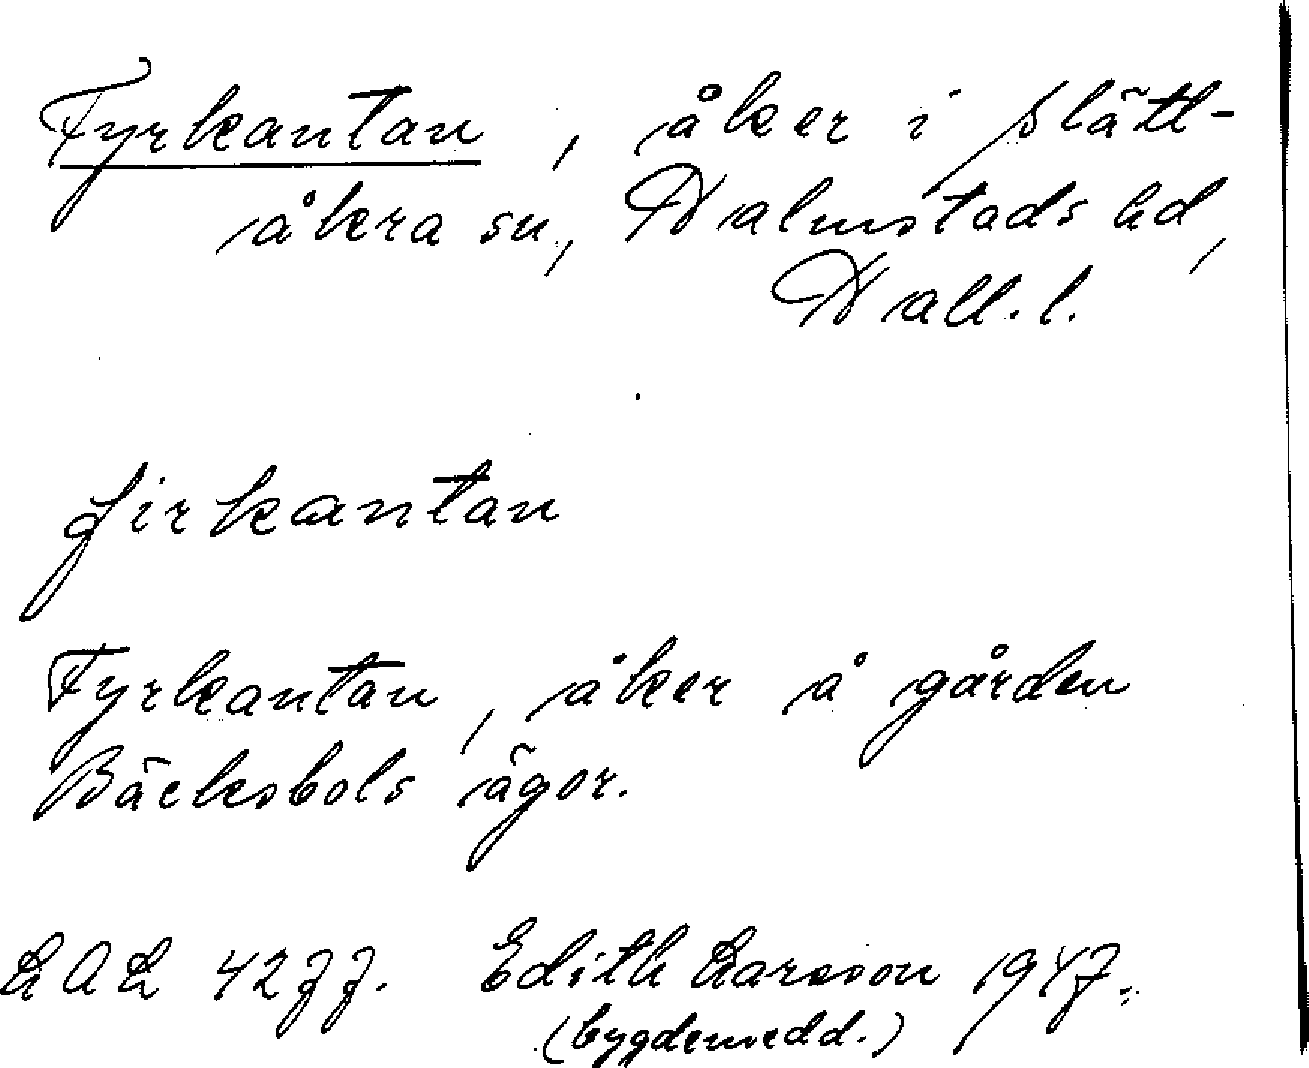 Fyrkantan, åker i Slätt-
åkra sn., Halmstads hd,
Hall. l.
firkantan
Fyrkantan, åker å gården
Bäcksbols ägor.
LAL 4277. Edith Larsson 1947.
(bygdemedd.)